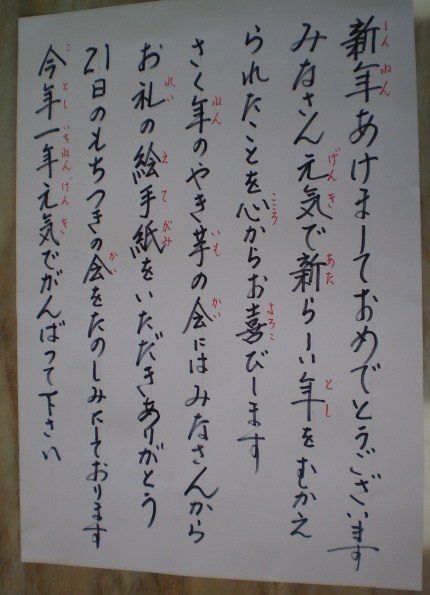 新年あけましておめでとうございます
みなさん元気で新らしい年をむかえ
られたことを心からお喜びします
さく年のやき芋の会にはみなさんから
お礼の絵手紙をいただきありがとう
21日のもちつきの会をたのしみにしております
今年一年元気でがんばって下さい